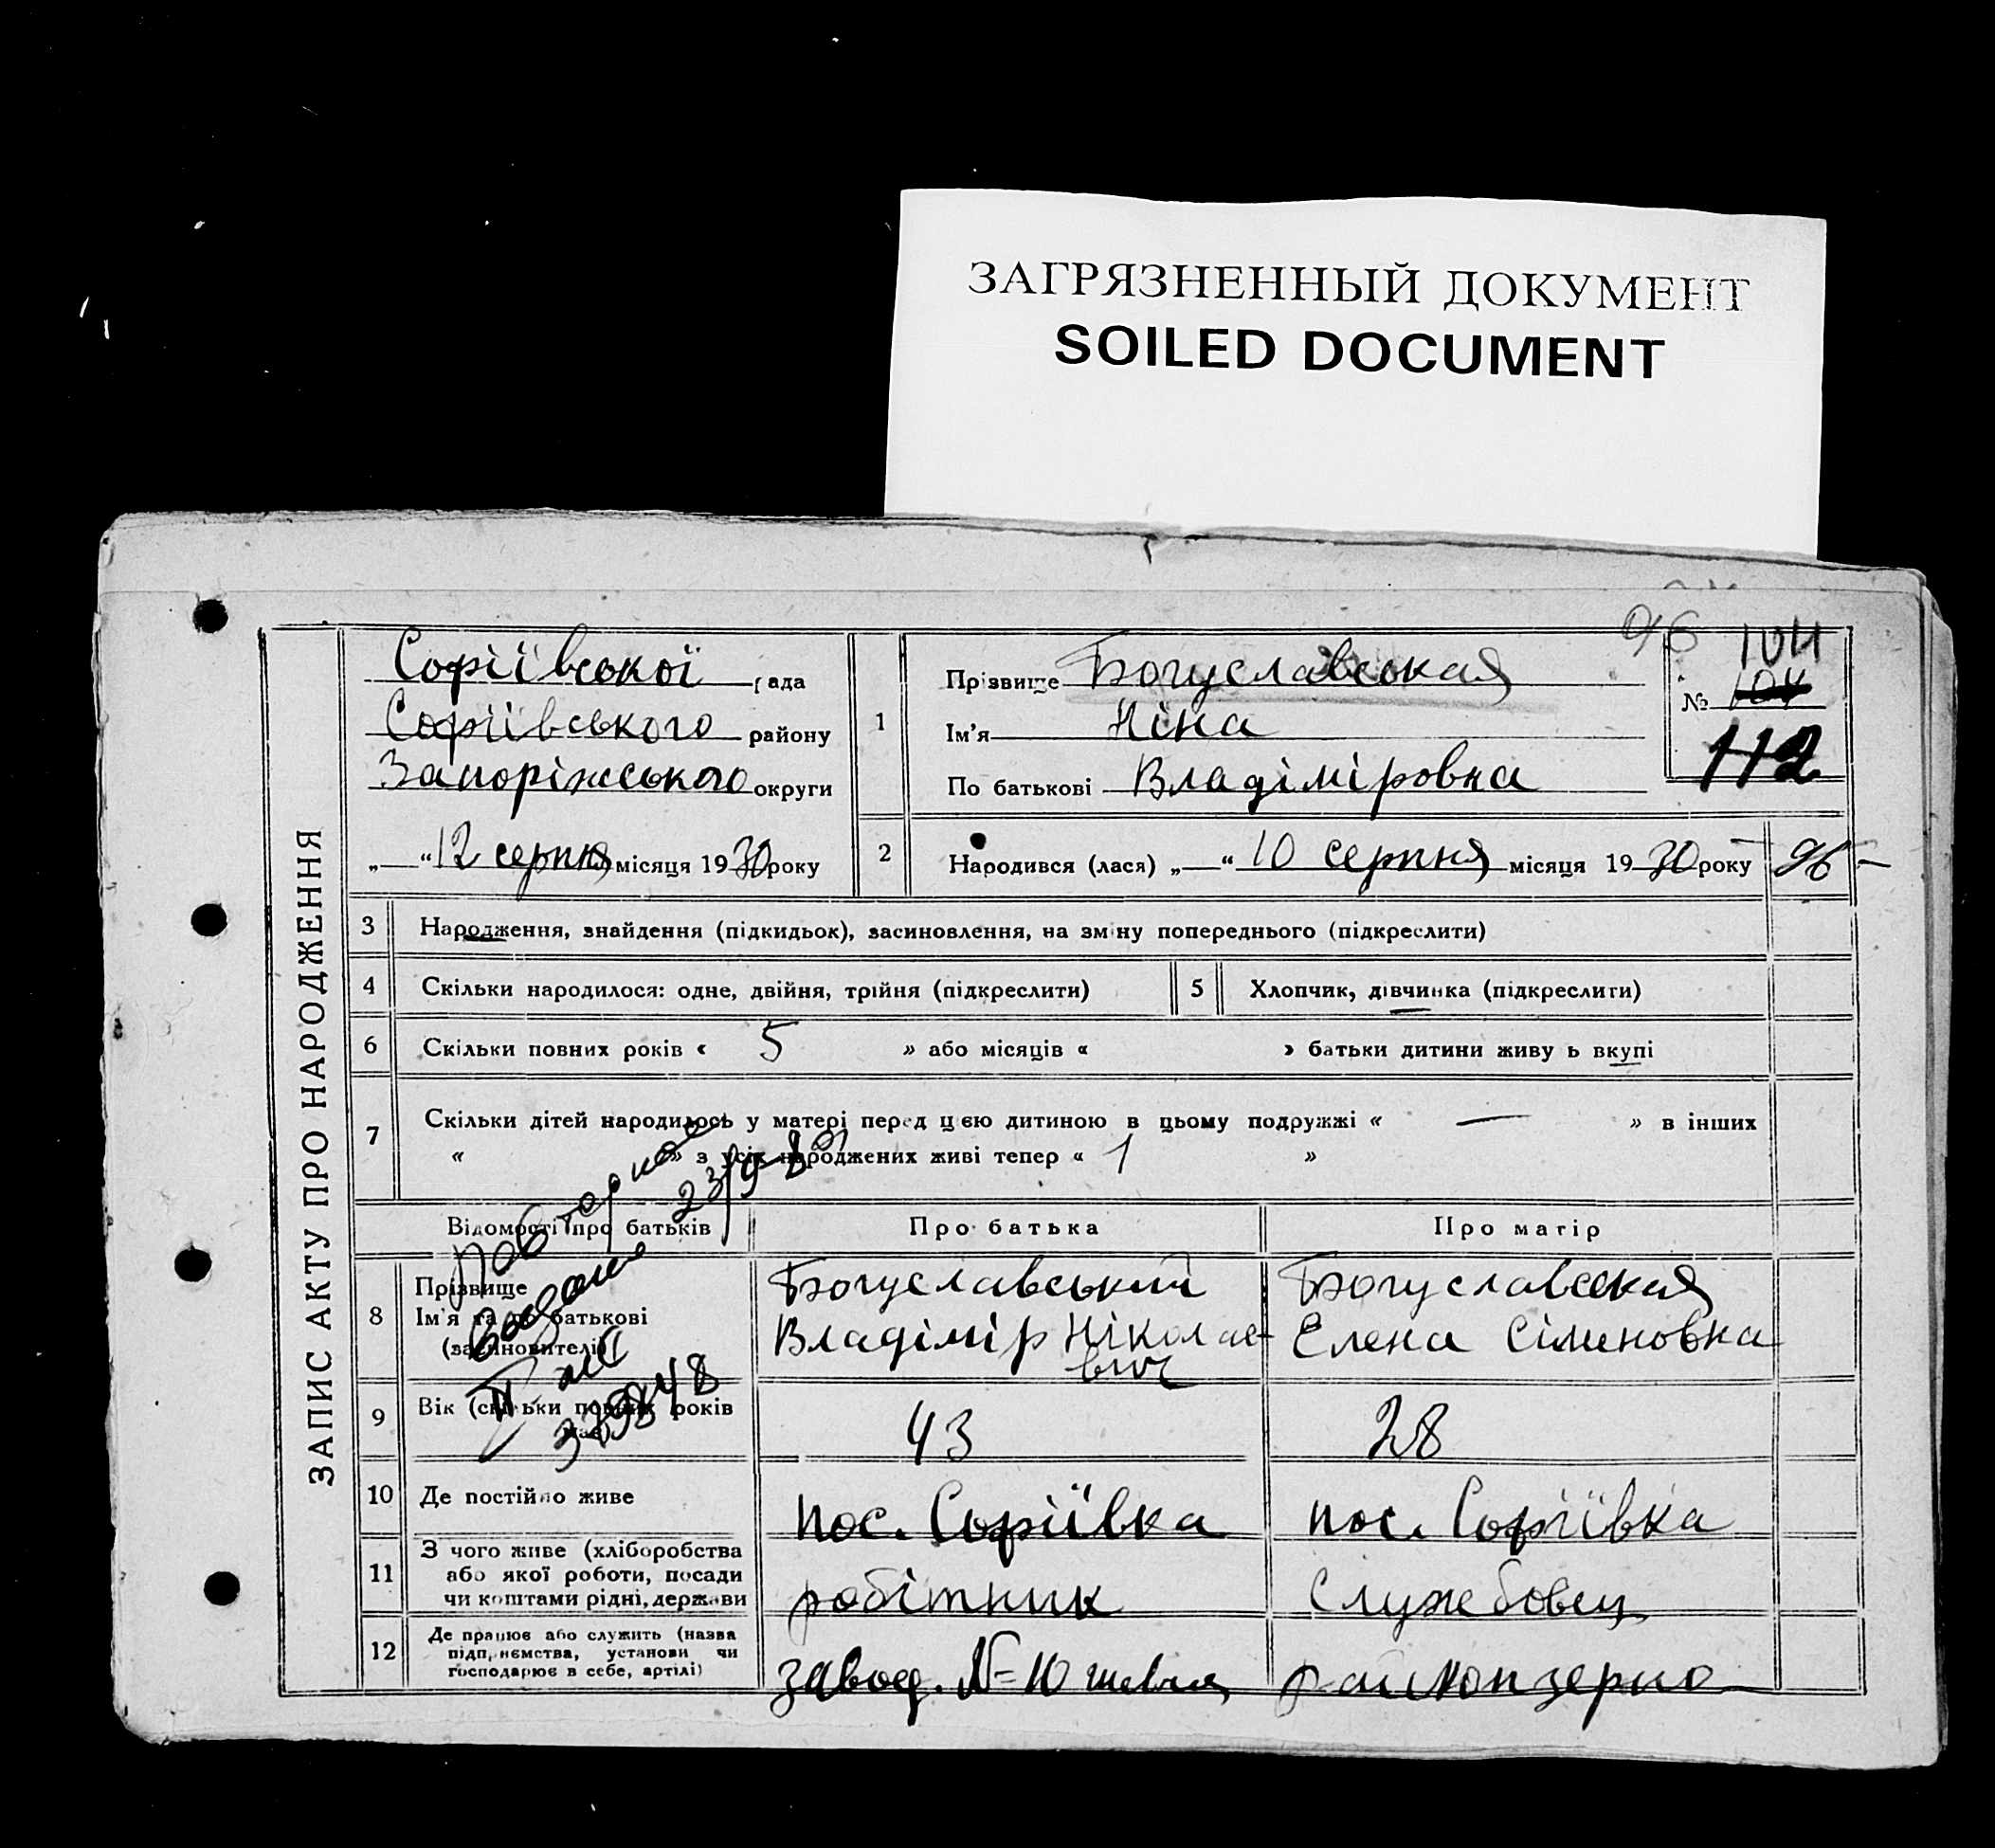 ЗАГРЯЗНЕННЫЙ ДОКУМЕНТ
SOILED DOCUMENT
ЗАПИС АКТУ ПРО НАРОДЖЕННЯ
96
104
Софіївської рада
Софіївського району
Запоріжського округи
„ “ 12 серпня місяця 1930 року
1
Прізвище Богуславськая
Ім'я Ніна
По батькові Владіміровна
№ 104
112
2 Народився (лася) „ “ 10 серпня місяця 1930 року 96
3 Народження, знайдення (підкидьок), засиновлення, на зміну попереднього (підкреслити)
4 Скільки народилося: одне, двійня, трійня (підкреслити) 5 Хлопчик, дівчинка (підкреслити)
6 Скільки повних років « 5 » або місяців « » батьки дитини живуть вкупі
7 Скільки дітей народилось у матері перед цією дитиною в цьому подружжі « — » в інших
« » з усіх народжених живі тепер « 1 »
Повторное
23/9-
II
Відомості про батьків Про батька Про матір
8 Прізвище Богуславський Богуславская
Ім'я та по батькові Владімір Ніколае- Елена Сіменовна
(засиновителі) вич
9 Вік (скільки повних років має) 43 28
10 Де постійно живе пос. Софіївка пос. Софіївка
11 З чого живе (хліборобства або якої роботи, посади чи коштами рідні, держави робітник Службовец
12 Де працює або служить (назва підприємства, установи чи господарює в себе, артілі) завод. №-10 райконзерно